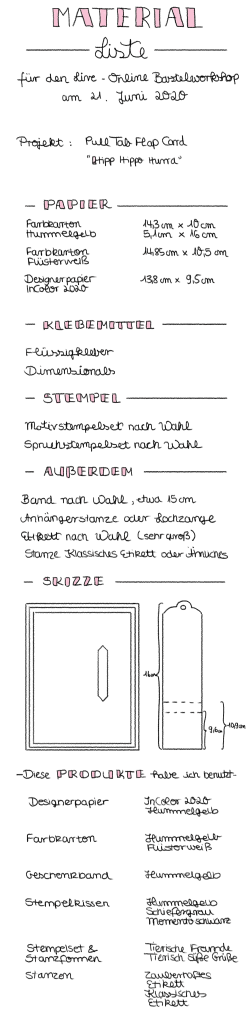 MATERIAL
Liste
für den Live - Online Bastelworkshop
am 21. Juni 2020
Projekt : Pull Tab Flap Card
"Hipp Hipp Hurra"
PAPIER
Farbkarton 14,3 cm x 10 cm
Hummelgelb 5,1 cm x 16 cm
Farbkarton 14,85 cm x 10,5 cm
Flüsterweiß
Designerpapier 13,8 cm x 9,5 cm
InColor 2020
KLEBEMITTEL
Flüssigkleber
Dimensionals
STEMPEL
Motivstempelset nach Wahl
Spruchstempelset nach Wahl
AUßERDEM
Band nach Wahl, etwa 15 cm
Anhängerstanze oder Lochzange
Etikett nach Wahl (sehr groß)
Stanze Klassisches Etikett oder Ähnliches
SKIZZE
16cm
Diese PRODUKTE habe ich benutzt
Designerpapier InColor 2020
Hummelgelb
Farbkarton Hummelgelb
Flüsterweiß
Geschenkband Hummelgelb
Stempelkissen Hummelgelb
Schiefergrau
Memento schwarz
Stempelset & Tierische Freunde
Stanzformen Tierisch Süße Grüße
Stanzen Zauberhaftes
Etikett
Klassisches
Etikett